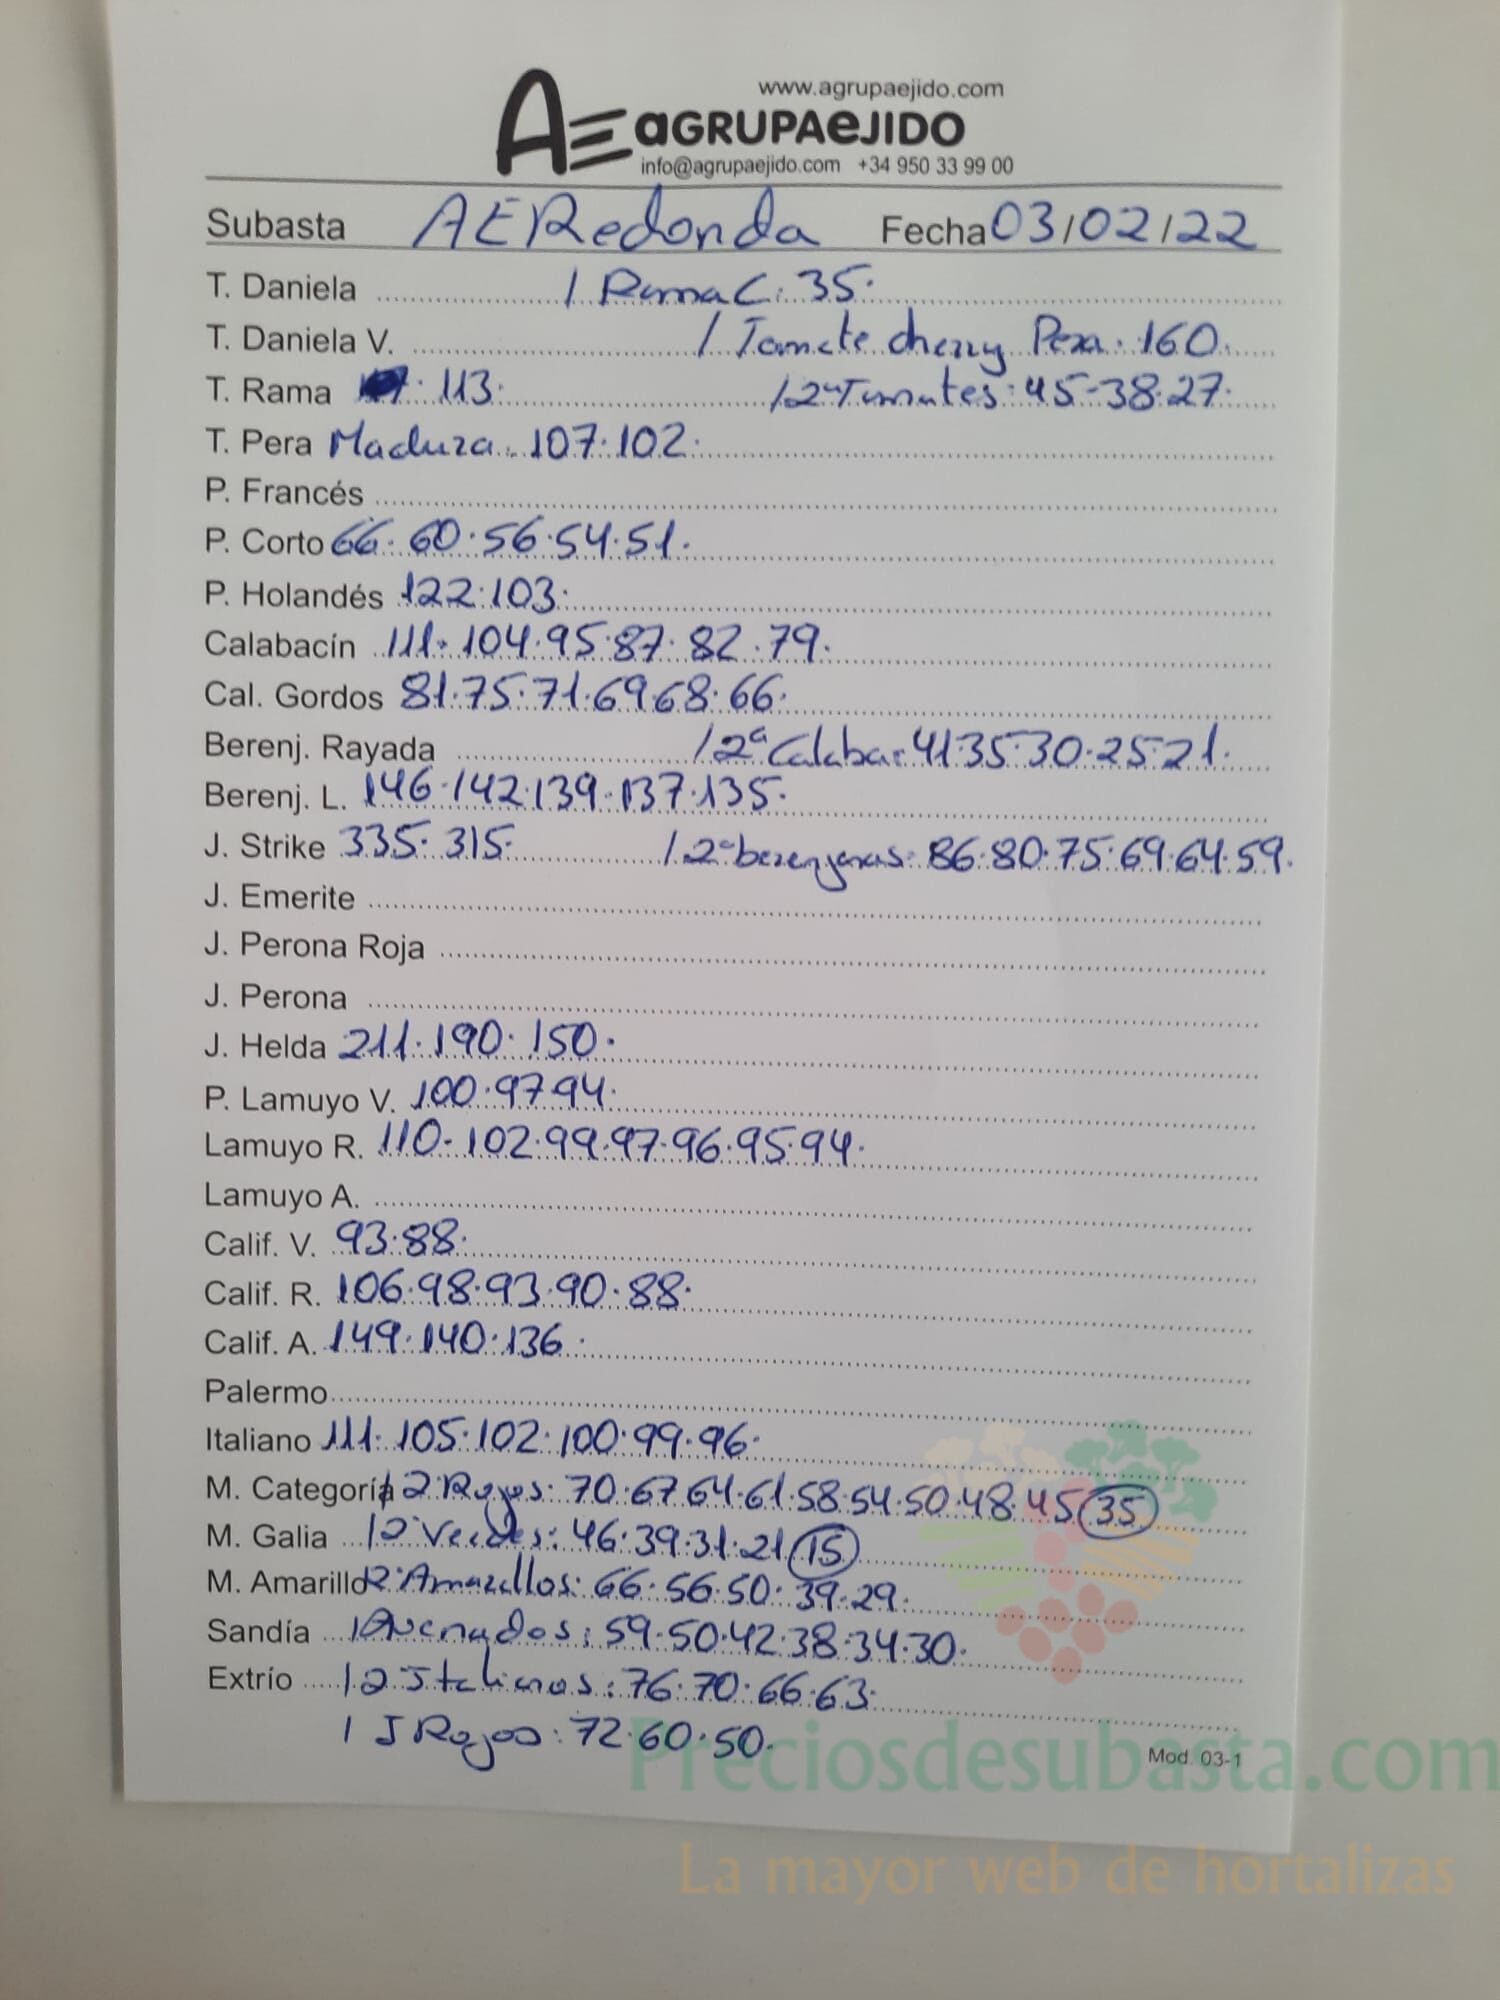 www.agrupaejido.com
AE aGRUPAeJIDO
info@agrupaejido.com +34 950 33 99 00
Subasta AERedonda Fecha 03/02/22
T. Daniela / Rama C. 35.
T. Daniela V. / Tomate cherry Pera. 160.
T. Rama . 113. / 2ª Tomates: 45-38.27.
T. Pera Madura. 107.102.
P. Francés
P. Corto 66.60.56.54.51.
P. Holandés 122.103.
Calabacín 111.104.95.87.82.79.
Cal. Gordos 81.75.71.69.68.66.
Berenj. Rayada / 2ª Calaba: 41.35.30.25.21.
Berenj. L. 146.142.139.137.135.
J. Strike 335.315. / 2ª berenjenas: 86.80.75.69.64.59.
J. Emerite
J. Perona Roja
J. Perona
J. Helda 211.190.150.
P. Lamuyo V. 100.97.94.
Lamuyo R. 110-102.99.97.96.95.94.
Lamuyo A.
Calif. V. 93.88.
Calif. R. 106.98.93.90.88.
Calif. A. 149.140.136.
Palermo
Italiano 111.105.102.100.99.96.
M. Categoría / 2ª Rojos: 70.67.64.61.58.54.50.48.45 35
M. Galia / 2ª Verdes: 46.39.31.21 15
M. Amarillo / 2ª Amarillos: 66.56.50.39.29.
Sandía / Asurcados: 59.50.42.38.34.30.
Extrío / 2ª Italianos: 76.70.66.63.
/ J Rojos: 72.60.50.
Mod. 03-1
Preciosdesubasta.com
La mayor web de hortalizas